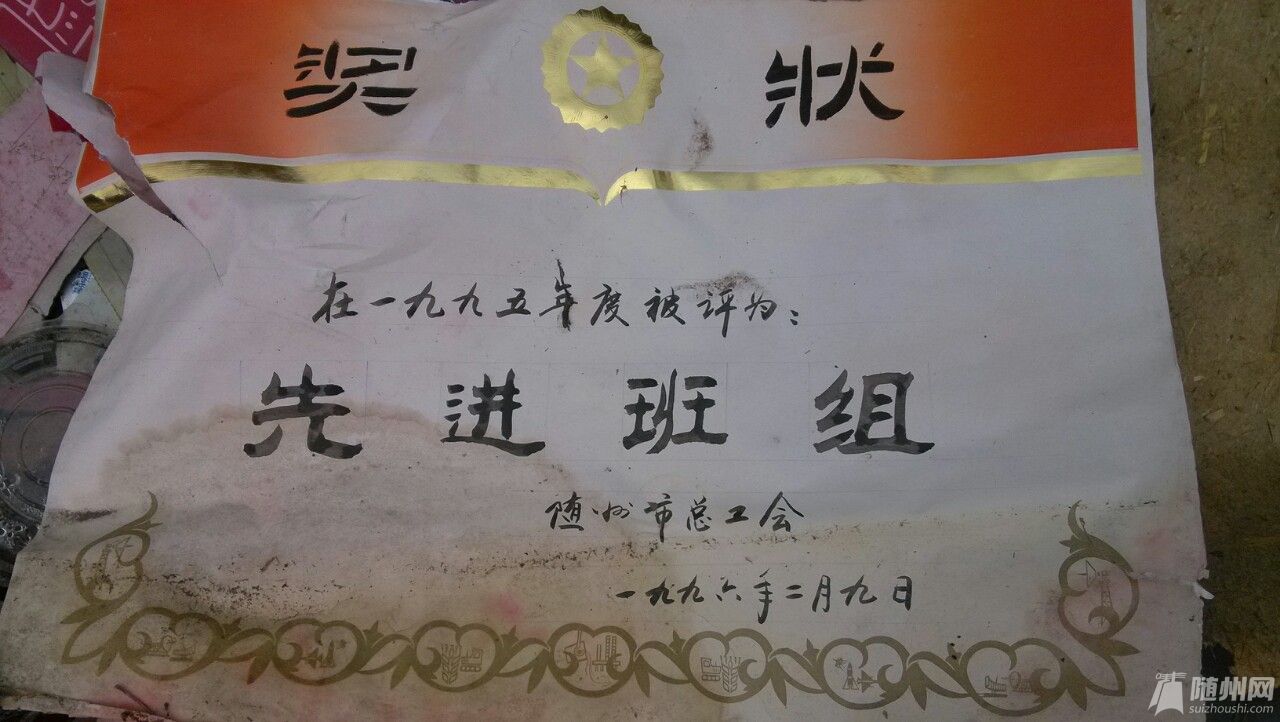 奖状
在一九九五年度被评为：
先进班组
随州市总工会
一九九六年二月九日
随州网
suizhoushi.com